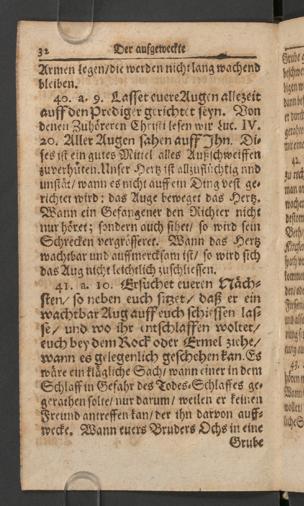 32 Der aufgeweckte
Armen legen/die werden nicht lang wachend
bleiben.
40. a. 9. Lasset euere Augen allezeit
auff den Prediger gerichtet seyn. Von
denen Zuhöreren Christi lesen wir Luc. IV.
20. Aller Augen sahen auff Jhn. Di-
ses ist ein gutes Mittel alles Außschweiffen
zu verhüten. Unser Hertz ist allzuflüchtig und
unstät/ wann es nicht auff ein Ding vest ge-
richtet wird: das Auge beweget das Hertz.
Wann ein Gefangener den Richter nicht
nur höret; sondern auch sihet/ so wird sein
Schrecken vergrösseret. Wann das Hertz
wachtbar und auffmercksam ist/ so wird sich
das Aug nicht leichtlich zuschliessen.
41. a. 10. Ersuchet eueren Näch-
sten/ so neben euch sitzet/ daß er ein
wachtbar Aug auff euch schiessen las-
se/ und wo ihr entschlaffen woltet/
euch bey dem Rock oder Ermel ziehe/
wann es gelegenlich geschehen kan. Es
wäre ein klägliche Sach/ wann einer in dem
Schlaff in Gefahr des Todes-Schlaffes ge-
gerathen solte/ nur darum/ weilen er keinen
Freund antreffen kan/ der ihn darvon auff-
wecke. Wann euers Bruders Ochs in eine
Grube